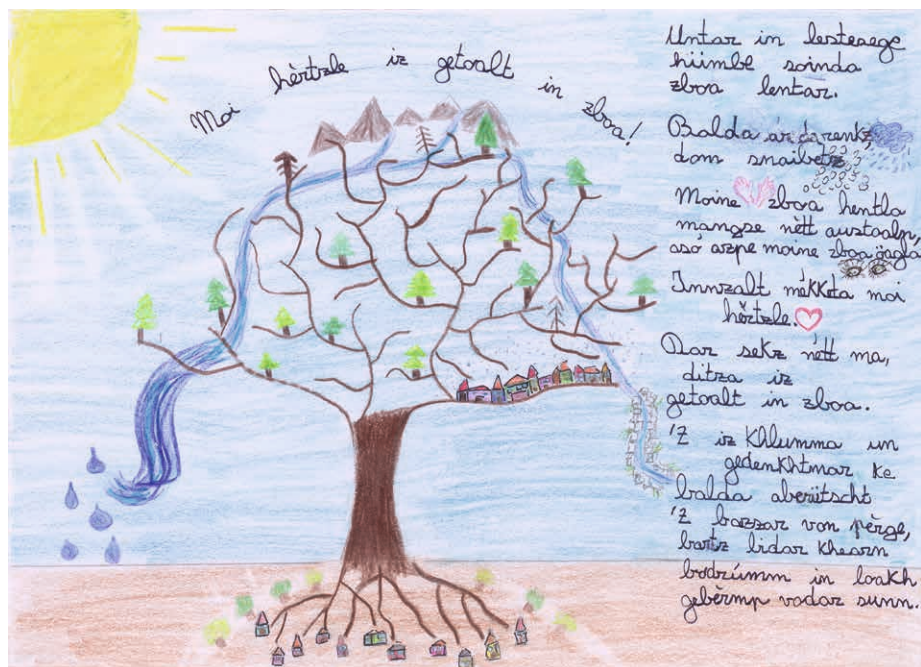 Moi hèrtzle iz getoalt in zboa!
Untar in lestesege
hümbl soinda
zboa lentar.
Balda ár darenk,
dom snaibetz
Moine zboa hentla
mangse nètt austoaln,
asó azpe moine zboa öagla
Innvzalt mékketa moi
hèrtzle.
Dar sekz nètt ma,
ditza iz
getoalt in zboa.
'Z iz khlumma un
gedenkhtmar ke
balda aberütscht
'z bazzar von pèrge,
bartz bidar khearn
bodrúmm in loakh
gebèrmp vodar sunn.